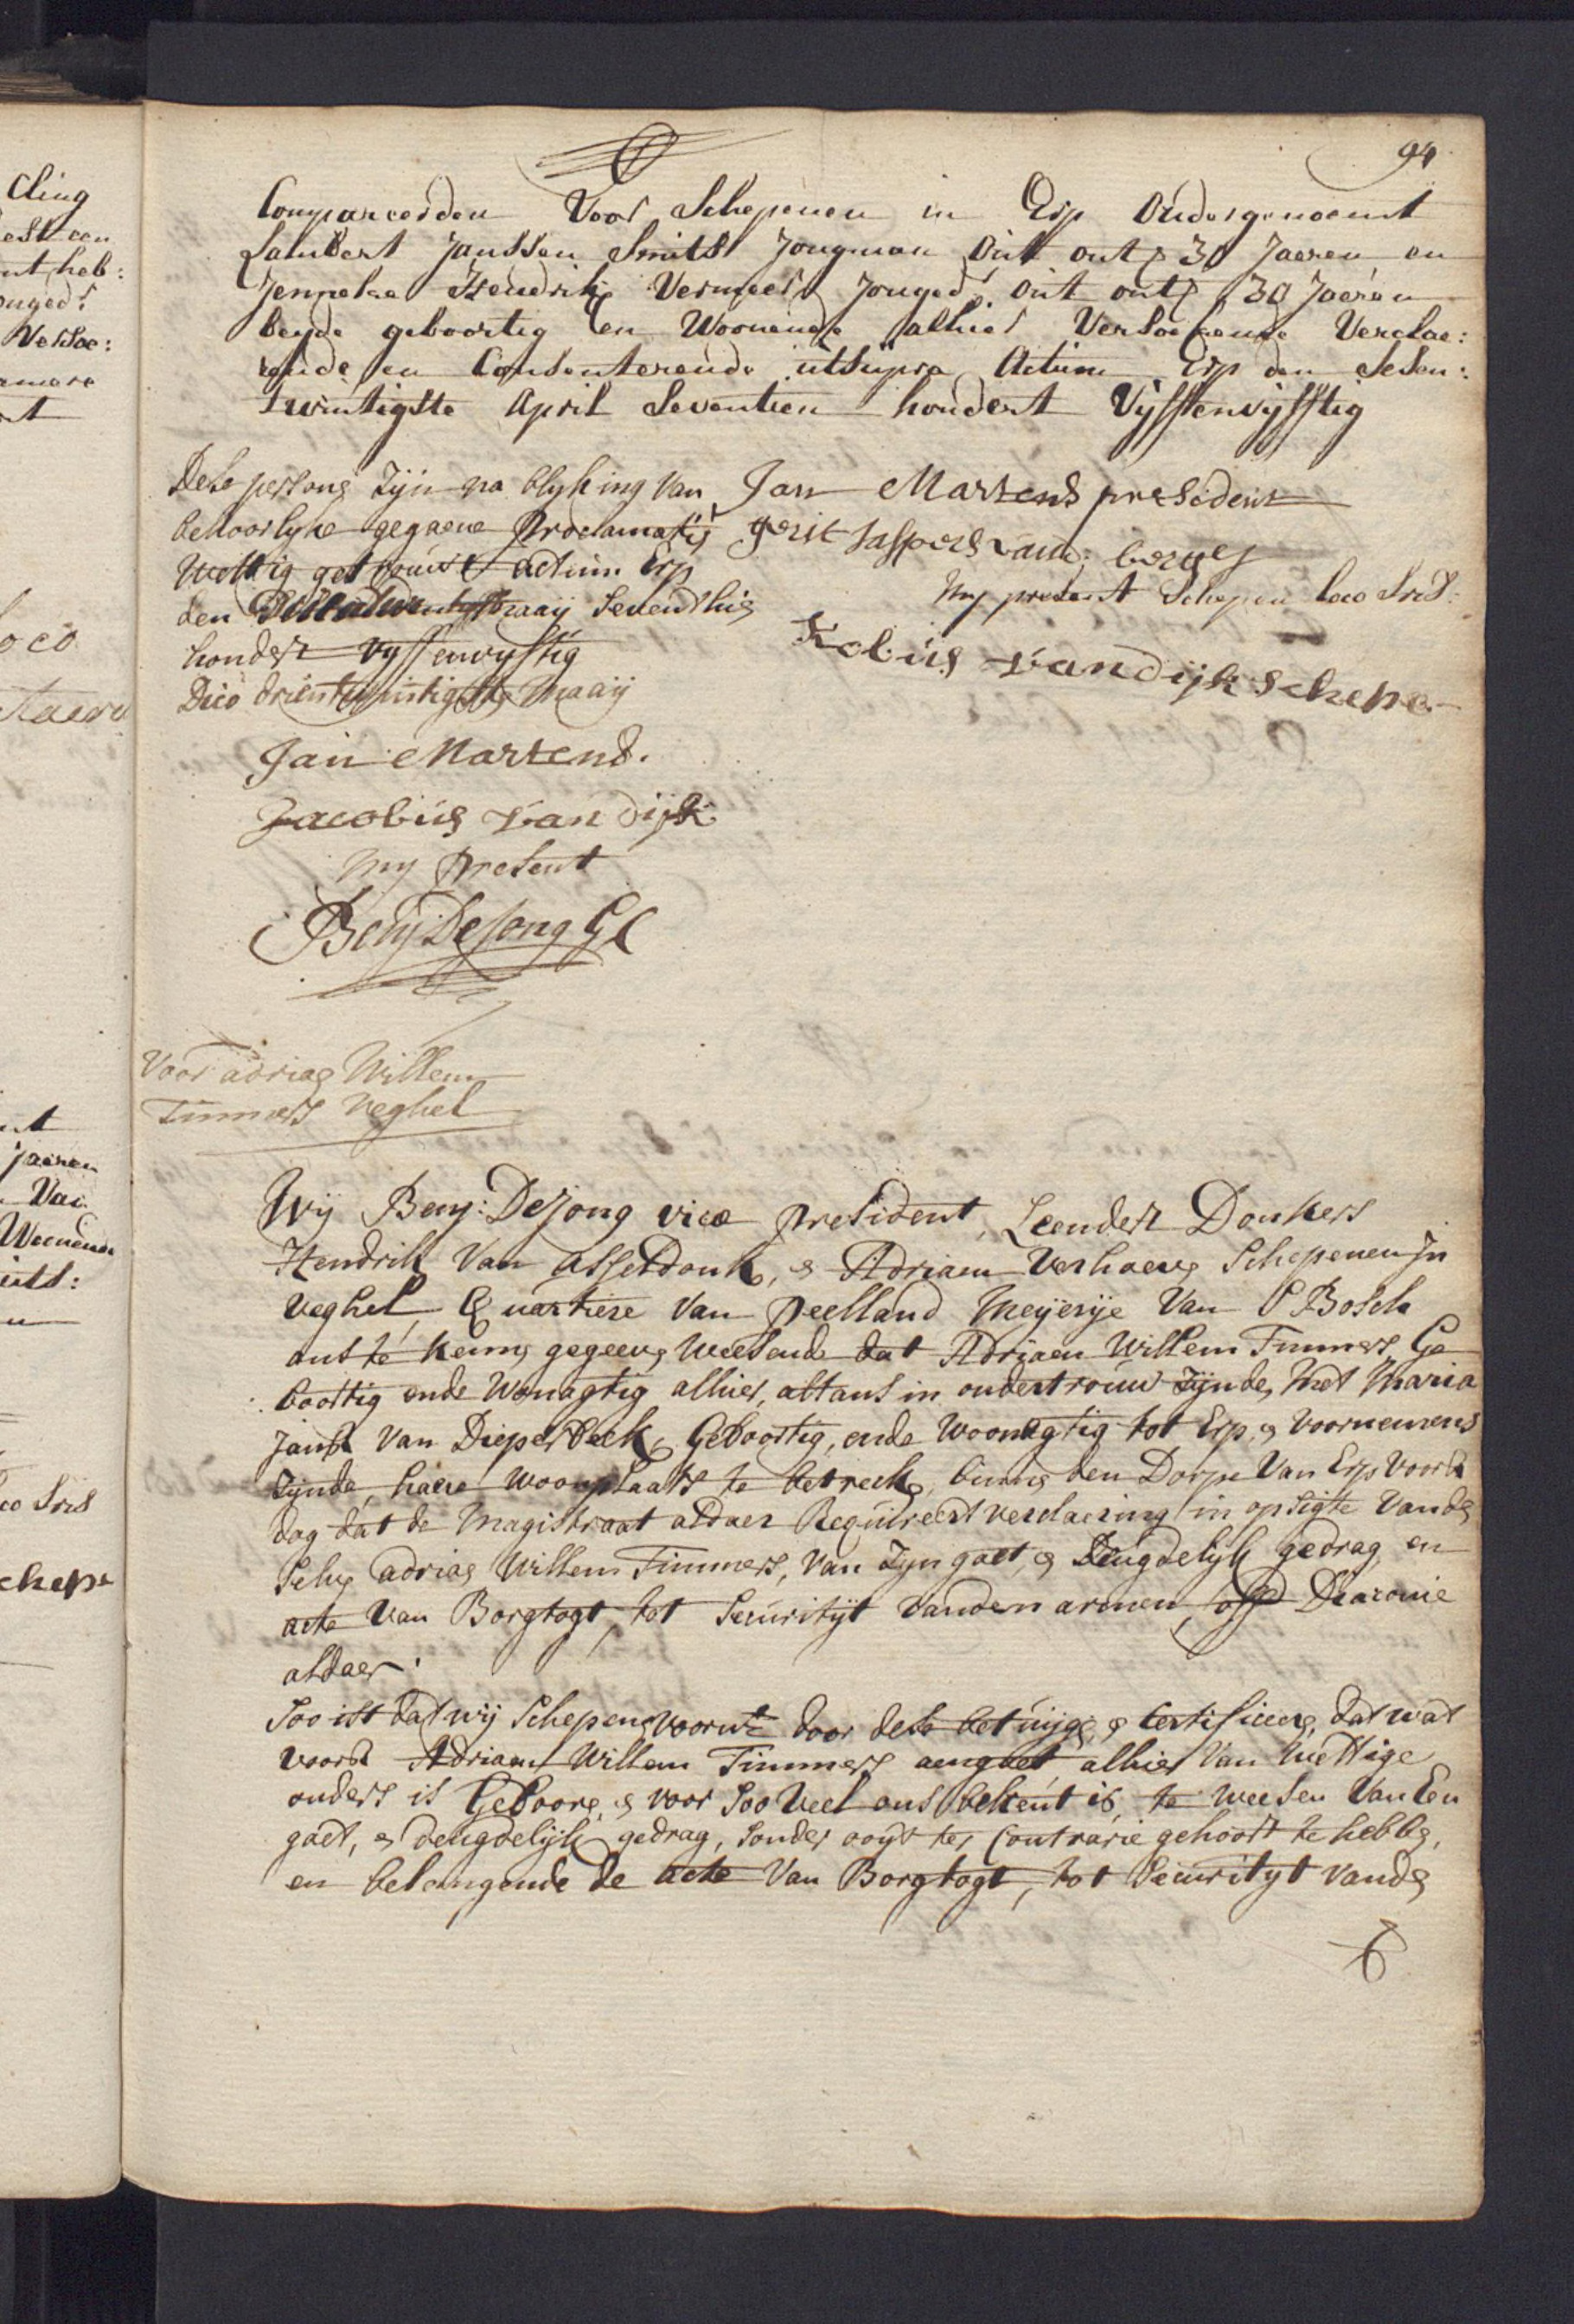 94
Compareerden Voor Schepenen in Erp Ondergenoemt
Lambert Janssen Smits Jongman Out ont 30 Jaeren en
Jenneke Hendrik Vermeer Jonged: Out ont 30 Jaeren
beyde geboortig en Woonende alhier Versoekende Verclae:
rende en Consenterende utsupra Actum Erp den Sesen:
twintigste April Seventien hondert Vyfftenvyfftig
Dese persong Zyn na blyking Van
behoorlyke gegaene Proclamatis
Wettig getrouwt actum Erp
den maaij Seventhig
hondert Vyffenvyftig
Dico drientwintigste maaij
Jan Martens.
Jacobus van dijk
my Present
Benj De Jong
Jan Martens president
gerit Jaspers vand: berge
My present Schepen loco Sris:
Kobus van dijk schepe
Voor adriaen Willem
Timmers Veghel
Wij Benj: De Jong vice president, Leendert Donkers
Hendrik Van Asseldonk, en Adriaen Verhoeve Schepenen in
Veghel, Quartiere Van Peelland Meijerije Van S Bosch
ons te kenne gegeeve Weesende dat Adriaen Willem Timmers Ge
boortig ende Wonagtig alhier, altans in ondertrouw Zynde, Met Maria
Janse Van Dieperbeek, Geboortig, ende Woonagtig tot Erp, en Voornemens
Zynde, haere Woonplaats te betrecke, binne den Dorpe Van Erp Voors
dog dat de Magistraat aldaer Requireert verclaering in opsigte Vande
Selve adriae Willem Timmers, Van Zyn goet, en Deugdelyk gedrag, en
acte Van Borgtogt, tot Securityt vanden armen, off Diaconie
aldaer.
Soo ist dat wij Schepene voornt door dese betuijge, en Certificeere, dat wat
voors Adriaen Willem Timmers aengaet, alhier Van Wettige
ouders is Geboore, en voor Soo Veel ons bekent is, te weesen Van Een
goet, en deugdelijk gedrag, Sonder ooyt ter Contrarie gehoort te hebbe,
en belangende de acte Van Borgtogt, tot Securityt vande